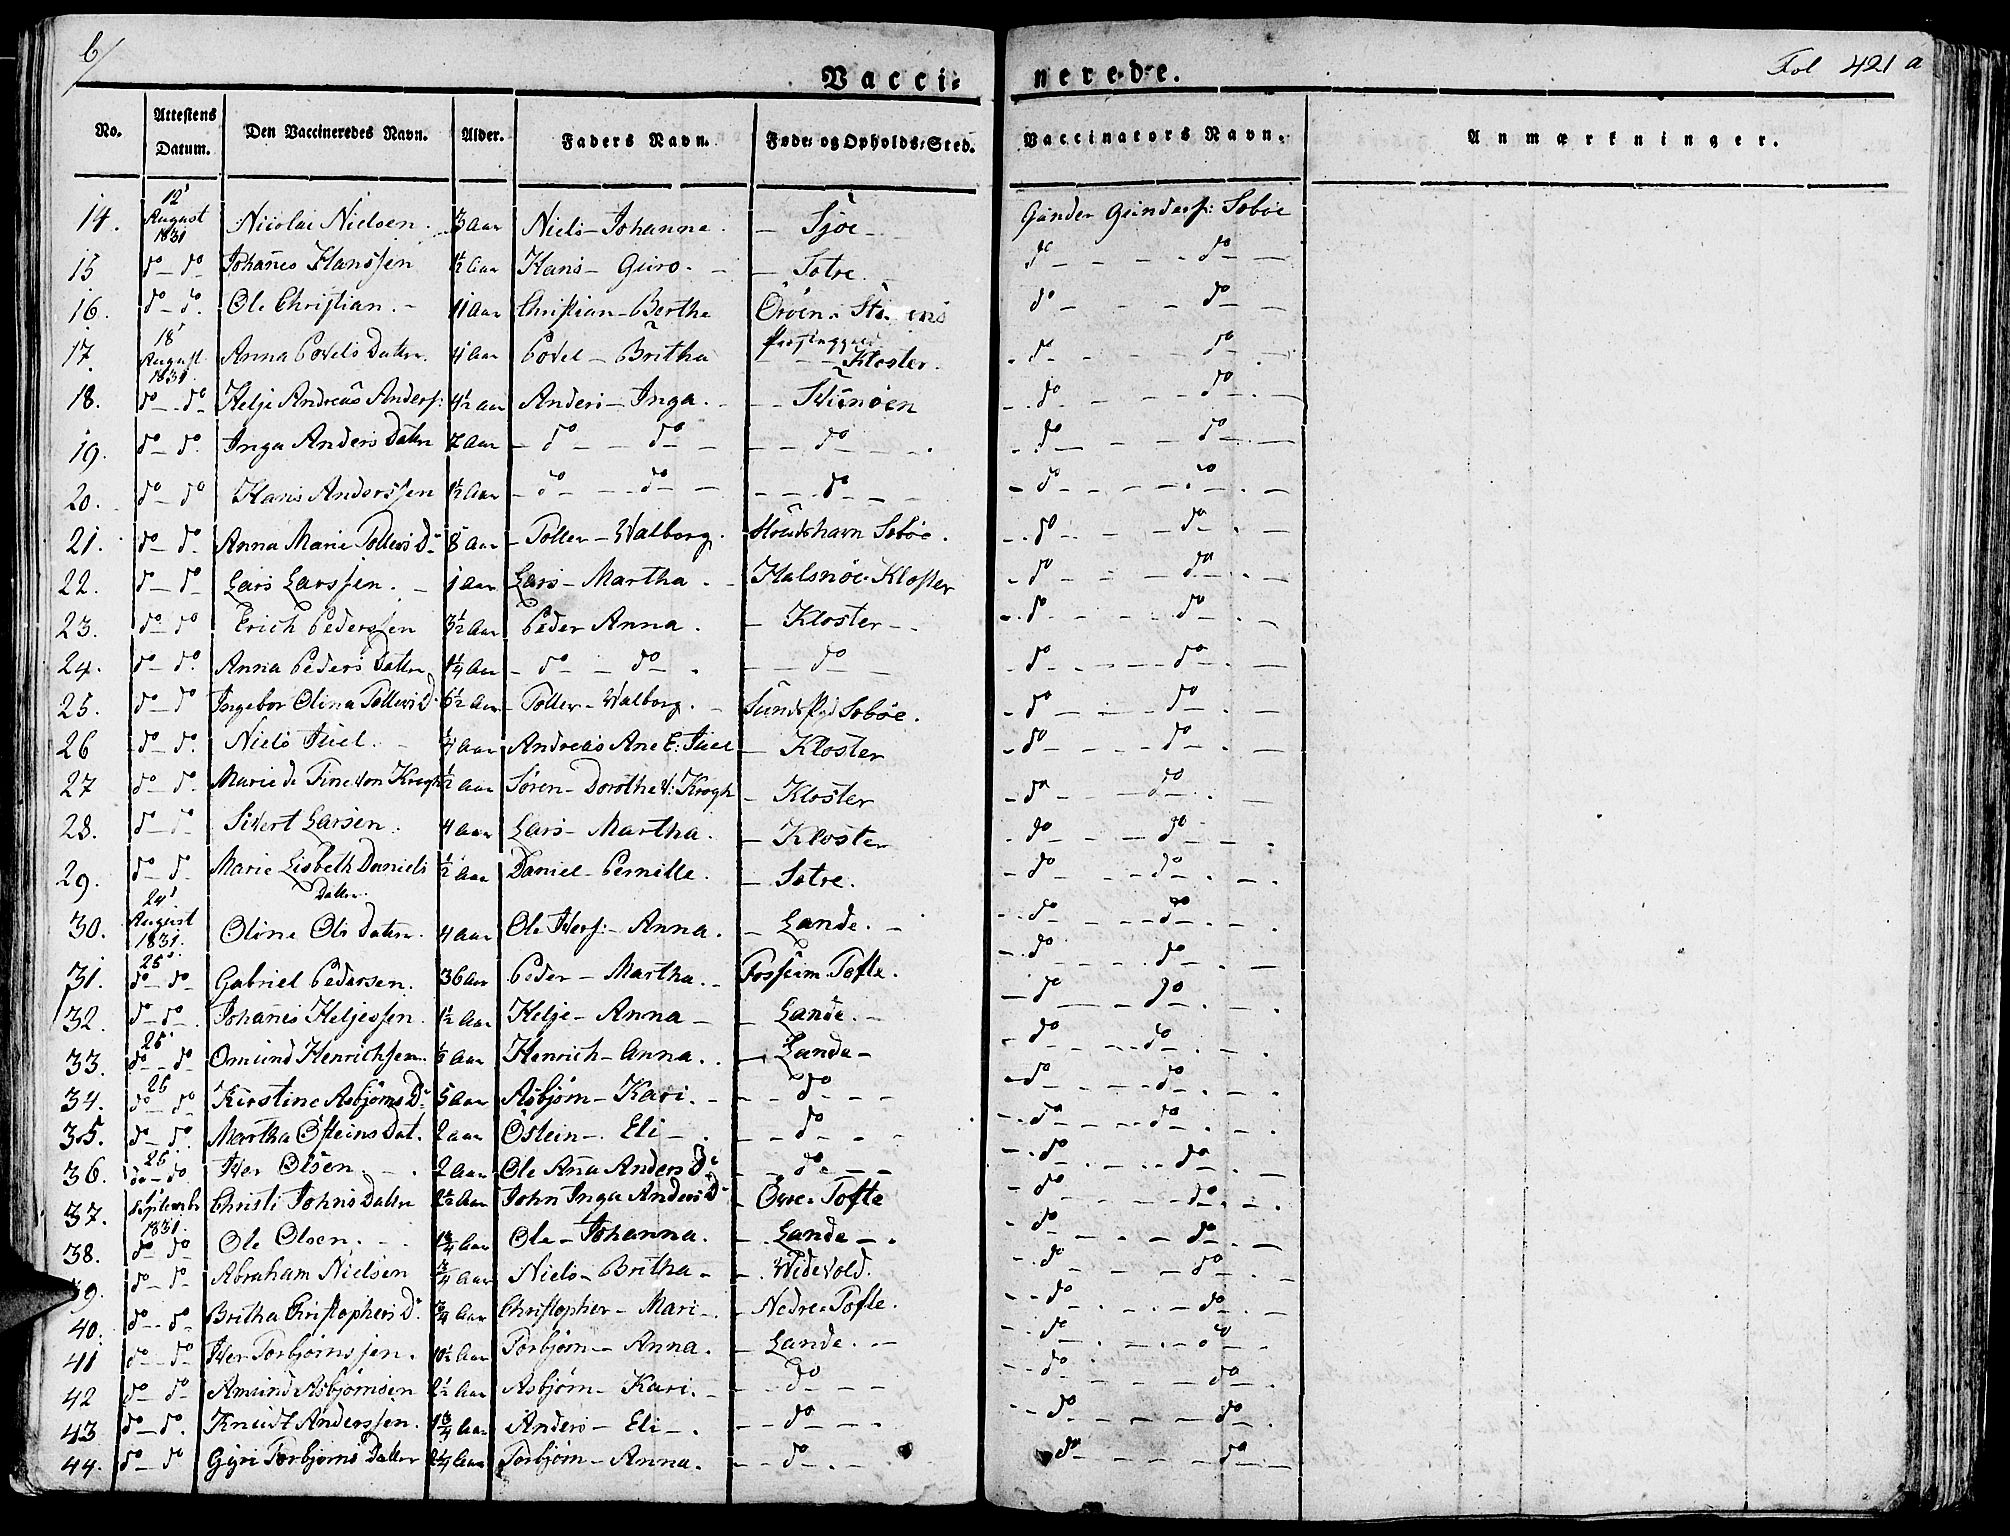 6/
Fol 421 a
Vacci- nerede.
No. | Attestens Datum. | Den Vaccineredes Navn. | Alder. | Faders Navn. | Føde- og Opholds-Sted. | Vaccinators Navn. | Anmærkninger.
14. | 12' August 1831 | Nicolai Nielsen. | 3 Aar | Niels - Johanne. | - Sjøe - | Gunder Gunders: Sebøe
15 | do - do | Johanes Hanssen | 1½ Aar | Hans - Guro. - | - Totre. | do - - - do - -
16. | do - do. | Ole Christian. - | 11 Aar | Christian - Berthe | | do - - do - -
17. | 18' August 1831. | Anna Povels Datter. | 4 Aar | Povel - Britha | - - Kloster. | - do - - do - -
18. | do - do | Helje Andreas Anders: | 4½ Aar | Anders - Inga. - | | - do - - do - -
19. | do - do. | Inga Anders Datter | 7 Aar | - do - - do - | - - do - - . | - do - - do - -
20. | do - do | Hans Anderssen | 1½ Aar | - do - - do - | - - do - - | - do - - do - -
21. | do - do. | Anna Marie Tollevs D. | 8 Aar | - Tollev - Walborg. | Sebøe. | - do - - do - -
22. | do - do | Lars Larssen. - | 1 Aar | Lars - Martha. - | Halsnøe Kloster | - do - - do - -
23. | do - do | Erich Pederssen | 3½ Aar | Peder Anna. | - Kloster - - | - do - - do - -
24. | do - do. | Anna Peders Datter | 1¼ Aar | - do - do - . | - - do - | - do - - do - -
25. | do - do | Ingebor Olina Tollevs D. | 6½ Aar | - Tollev - Walborg. - | Sebøe. | - do - - do - -
26 | do - do. | Niels Juel. - | ¼ Aar | Andreas Ane E: Juel | - Kloster | - do - - do - -
27 | do - do. | Marie de Fine von Krogh | ½ Aar | Søren - Dorothe v: Krogh | - Kloster | - do - - do - -
28. | do - do | Sivert Larsen. | 4 Aar | Lars - Martha. | - Kloster | - do - - do - -
29. | do - do. | Marie Lisbeth Daniels Datter. | ½ Aar | Daniel - Pernille. | - Totre. | - do - - do - -
30. | 24' August 1831. | Oline Ols Datter. | 4 Aar | Ole Ivers: - Anna. | - Lande. - | - do - - do - -
31. | 25' do - do | Gabriel Pedersen. | 36 Aar | Peder - Martha. - | Tofte. | - do - - do - -
32. | do - do. | Johanes Heljessen. | 1½ Aar | Helje - Anna - | - Lande. - | - do - - do - -
33. | 25' do - do | Omund Henrichsen. | ½ Aar | Henrich - Anna. | - Lande - | - do - - do - -
34. | 26 do - do | Kirstine Asbjørns D. | 5 Aar | Asbjørn - Kari. - | - - do - - | - do - - do - -
35. | do - do. | Martha Østeins Dat. | 2 Aar | Østein - Eli - . | - - do - | - do - - do - -
36. | 26' do - do. | Iver Olsen. - . | 2 Aar | Ole Ana Anders D. | - - do - - | - do - - do - -
37. | 1' Septembr 1831. | Christi Johns Datter | 2½ Aar | John Inga Anders D. | - Øvre Tofte | - do - - do - -
38. | do - do | Ole Olsen. - - | 1¾ Aar | Ole - Johanna. | - Lande - . | - do - - do - -
39. | do - do | Abraham Nielsen | ¾ Aar | Niels - Britha - | - Widevold. | - do - - do - -
40. | do - do. | Britha Christophers D. | ¾ Aar | Christopher - Mari - . | - Nedre Tofte. | - do - - do - -
41 | do - do | Iver Torbjørnssen. | 10½ Aar | Torbjørn - Anna. | - Lande. - | - do - - do - -
42 | do - do | Amund Asbjørnsen | 2½ Aar | Asbjørn - Kari. - | - - do - - | - do - - do - -
43 | do - do. | Knudt Anderssen. | 1¾ Aar | Anders - Eli - . | - - do - - . | - do - - do - -
44. | do - do | Gyri Torbjørns Datter | 2¼ Aar | Torbjørn - Anna. | - - do - - | - do - - do - -